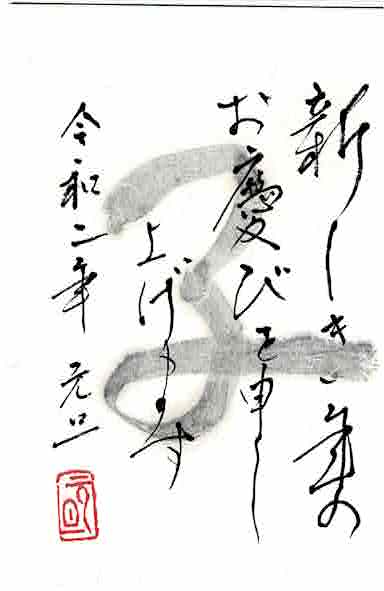 新しき年の
お慶びを申し
上げます
令和二年 元旦
子
元旦